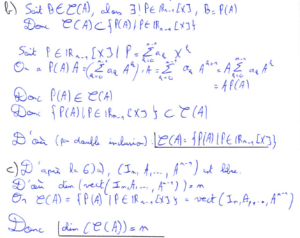 b) Soit B ∈ C(A), alors ∃! P ∈ ℝ_{n-1}[X], B = P(A)
Donc C(A) ⊂ {P(A) | P ∈ ℝ_{n-1}[X]}
Soit P ∈ ℝ_{n-1}[X] | P = ∑_{k=0}^{n-1} a_k X^k
On a P(A) A = (∑_{k=0}^{n-1} a_k A^k) · A = ∑_{k=0}^{n-1} a_k A^{k+1} = A ∑_{k=0}^{n-1} a_k A^k
= A P(A)
Donc P(A) ∈ C(A)
Donc {P(A) | P ∈ ℝ_{n-1}[X]} ⊂ C(A)
D'où (par double inclusion) : C(A) = {P(A) | P ∈ ℝ_{n-1}[X]}
c) D'après la 6) a), (I_n, A, ..., A^{n-1}) est libre.
D'où dim (vect(I_n, A, ..., A^{n-1})) = n
Or C(A) = {P(A) | P ∈ ℝ_{n-1}[X]} = vect(I_n, A, ..., A^{n-1})
Donc dim(C(A)) = n